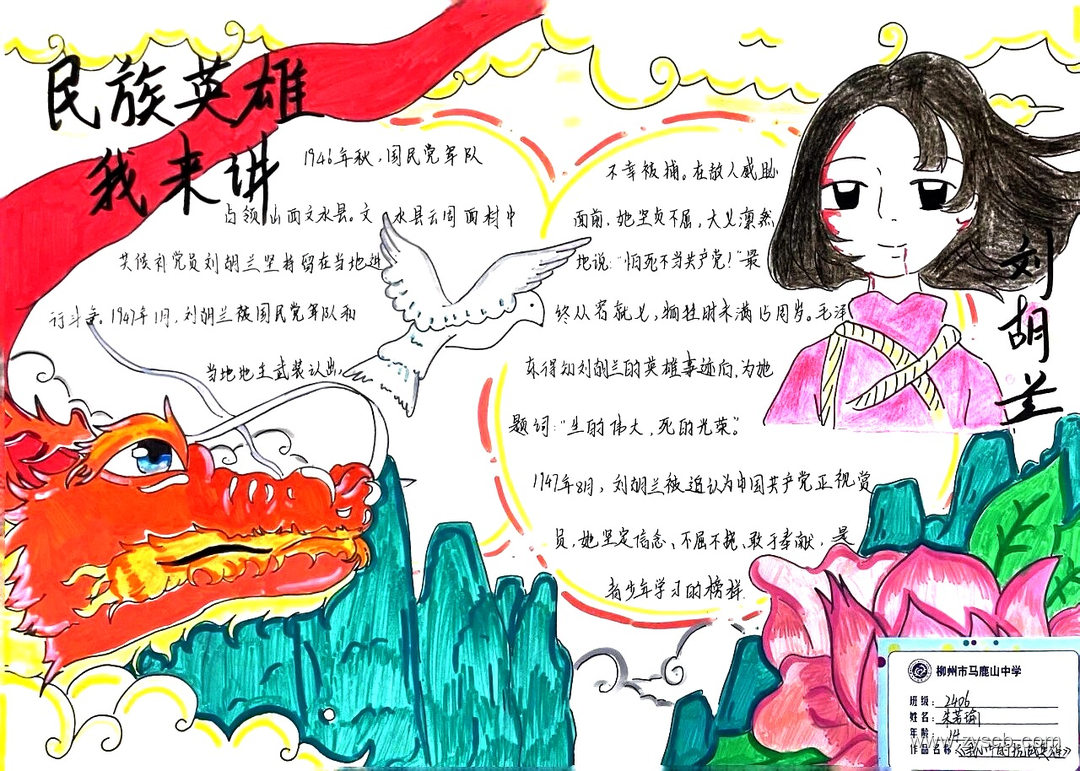 民族英雄
我来讲
1946年秋，国民党军队
占领山西文水县。文水县云周西村中
共候补党员刘胡兰坚持留在当地进
行斗争。1947年1月，刘胡兰被国民党军队和
当地地主武装认出
不幸被捕。在敌人威胁
面前，她坚贞不屈，大义凛然
地说："怕死不当共产党！"最
终从容就义，牺牲时未满15周岁。毛泽
东得知刘胡兰的英雄事迹后，为她
题词："生的伟大，死的光荣"。
1947年8月，刘胡兰被追认为中国共产党正视党
员，她坚定信念、不屈不挠、敢于奉献，是
青少年学习的榜样.
刘胡兰
柳州市马鹿山中学
班级：2406
姓名：朱芳瑜
年龄：14
作品名称：
www.zyscb.com